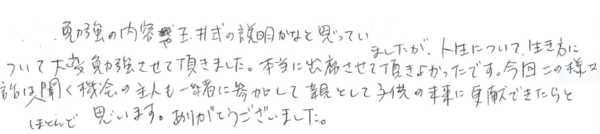 勉強の内容や玉井式の説明かなと思っていましたが、人生について、生き方に
ついて大変勉強させて頂きました。本当に出席させて頂きよかったです。今回この様な
話は聞く機会の
ほとんど
主人も一緒に参加して親として子供の未来に貢献できたらと
思います。ありがとうございました。